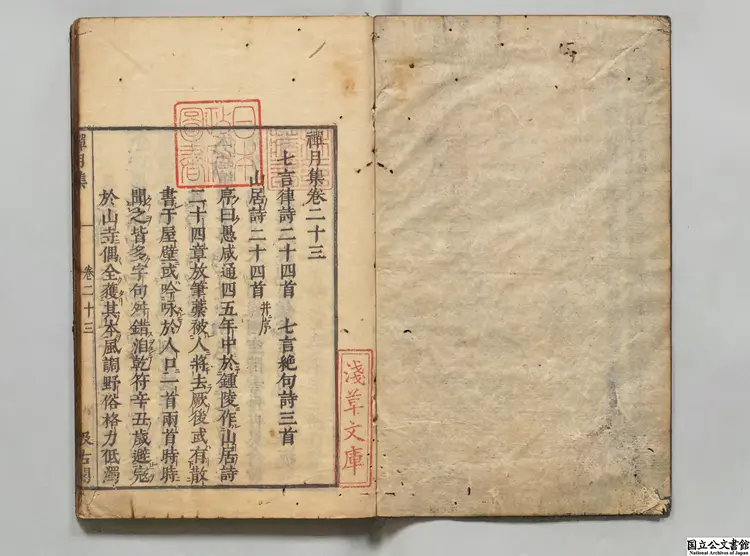 禪月集卷二十三
七言律詩二十四首　七言絶句詩三首
山居詩二十四首 并序
序曰愚咸通四五年中於鍾陵作山居詩
二十四章放筆藁被人將去厥後或有散
書于屋壁或吟咏於人口一首兩首時時
聞之皆多字句舛錯洎乾符辛丑歲避寇
於山寺偶全獲其本風調野俗格力低濁
禪月集
卷二十三
汲古閣
日本
政府
圖書
淺草文庫
国立公文書館
National Archives of Japan